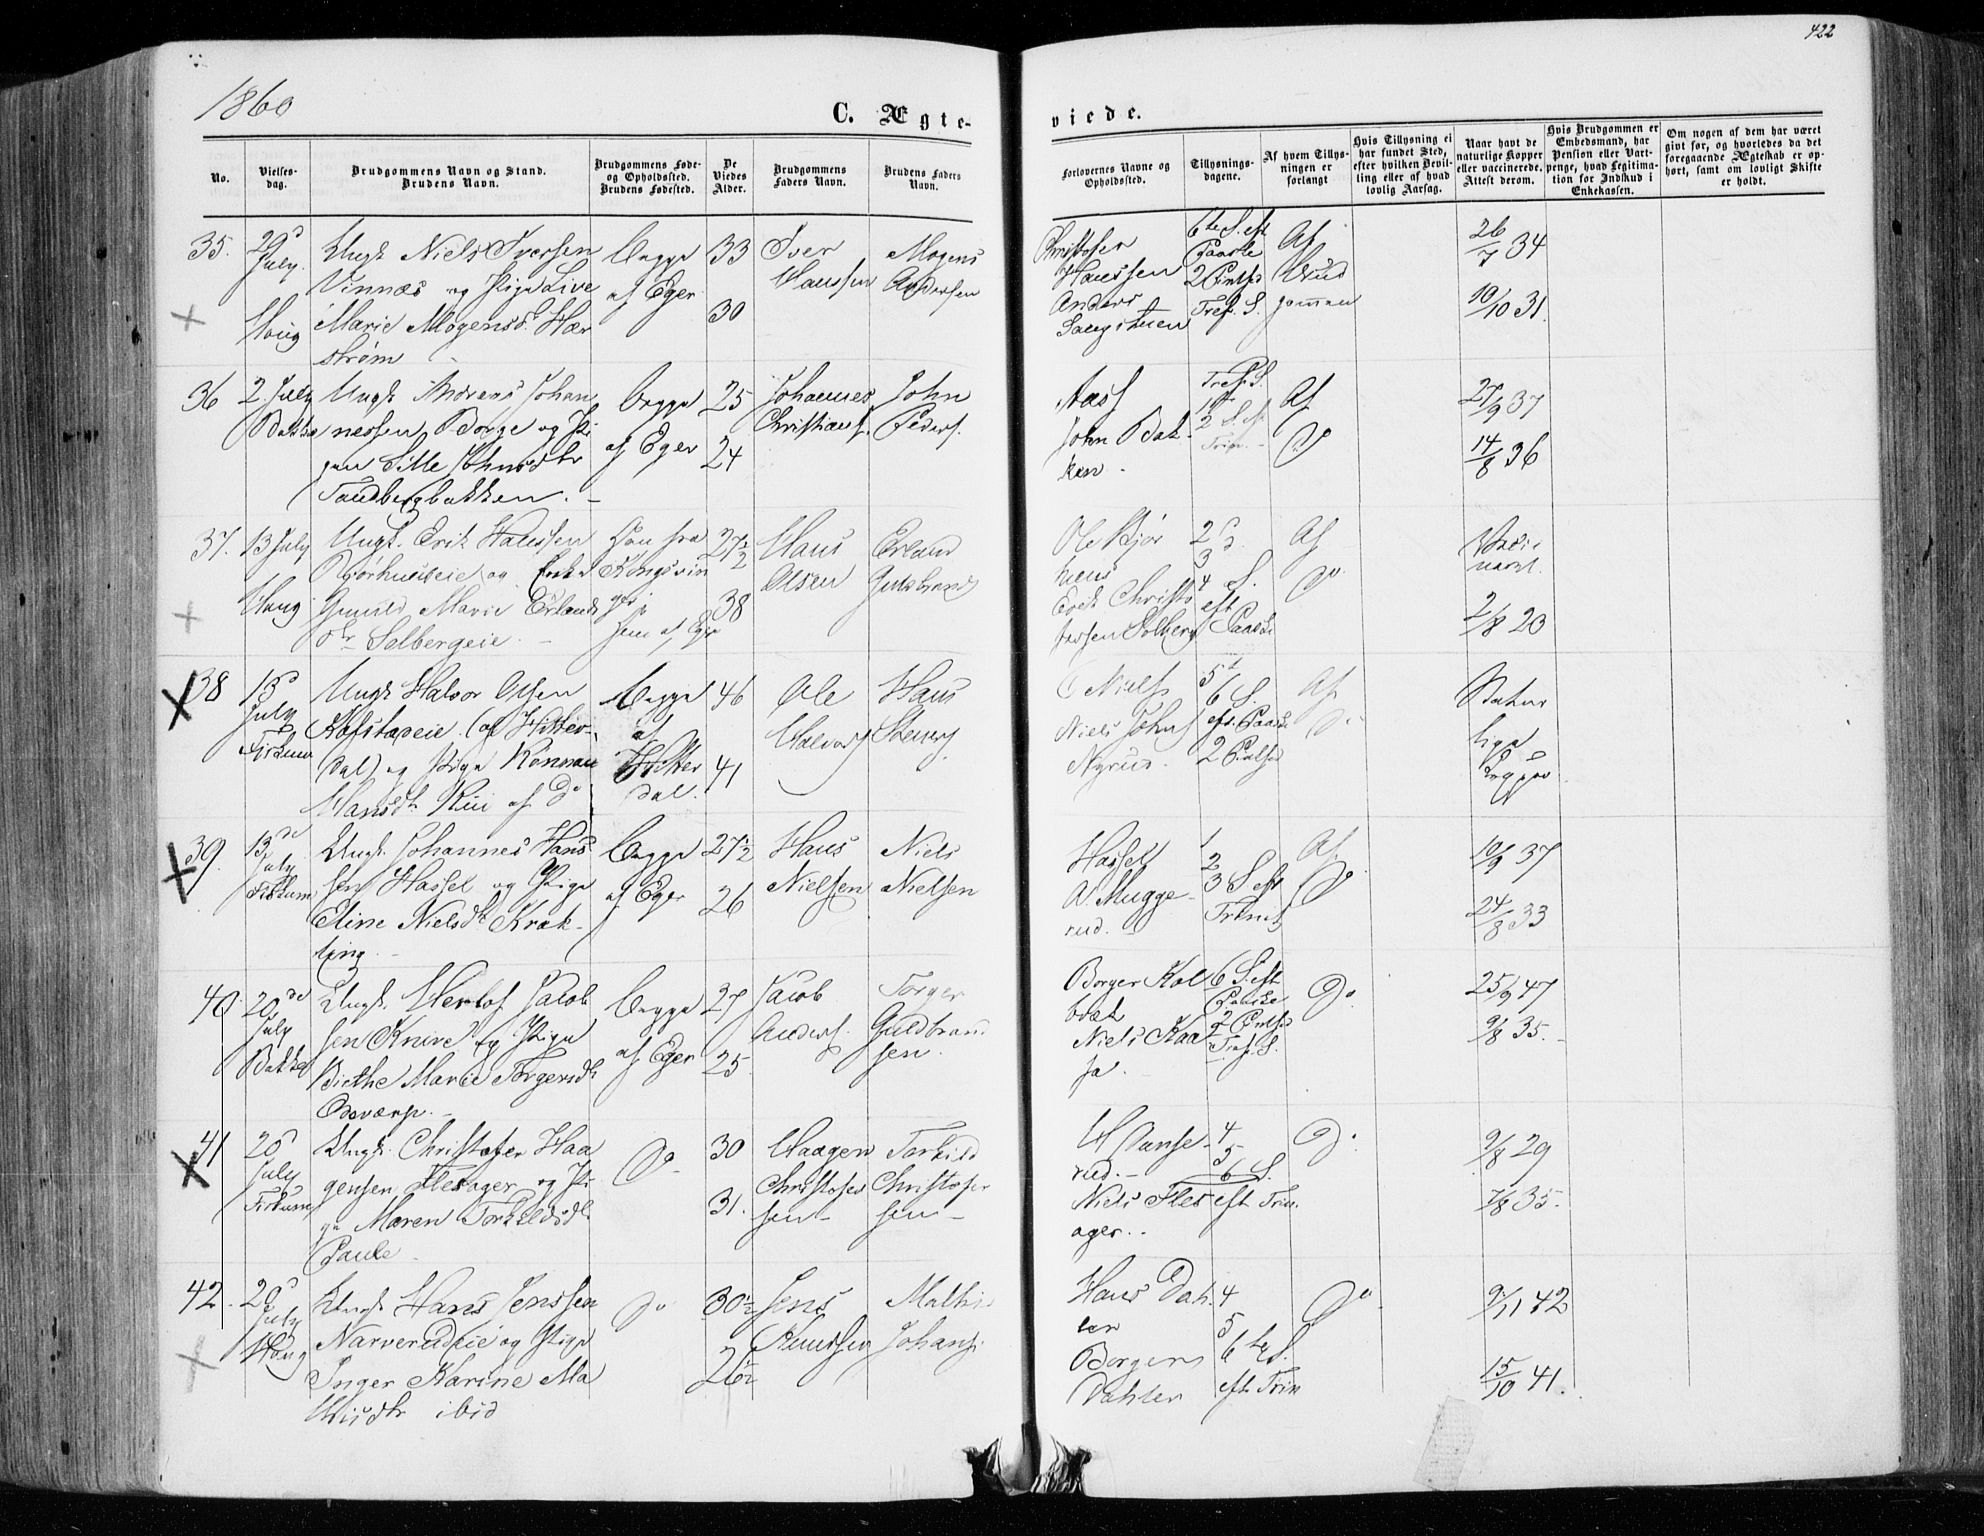 422
1860
C. Ægte-
viede.
No.
Vielses-
dag.
Brudgommens Navn og Stand.
Brudens Navn.
Brudgommens Føde-
og Opholdssted.
Brudens Fødested.
De
Viedes
Alder.
Brudgommens
Faders Navn.
Brudens Faders
Navn.
Forlovernes Navne og
Opholdssted.
Tillysnings-
dagene.
Af hvem Tillys-
ningen er
forlangt
Hvis Tillysning ei
har fundet Sted,
efter hvilken Bevil-
ling eller af hvad
lovlig Aarsag.
Naar havt de
naturlige Kopper
eller vaccinerede.
Attest derom.
Hvis Brudgommen er
Embedsmand, har
Pension eller Vart-
penge, hvad Legitima-
tion for Indskud i
Enkekassen.
Om nogen af dem har været
givt før, og hvorledes da det
foregaaende Ægteskab er op-
hørt, samt om lovligt Skifte
er holdt.
35.
July.
Houg
Ungk. Niels Iversen
Vinnæs og Pige Live
Marie Mogensd. Hær
strøm
Begge
af Eger
33
30
Iver
Hanssen
Mogens
Andersen
Christofer
Hanssen
Anders
6te S. eft
Paaske
2 Pintsed
Tref. S.
Af
26/7 34
10/10 31.
36
2. July
Bakke
Ungk. Andreas Johan
nessen Borge og Pi
gen Sille Johnsdtr
Tandbergbakken.
Begge
af Eger
25
24
Johannes
Christians.
John
Peders.
Aas
John Bak
ken
Tref. S.
2 S. ef.
Trin.
Af
Do
27/9 37
14/8 36
37.
13 July
Houg
Ungk. Erik Hanssen
og Enke
Gunild Marie Erlands
dr Solbergeie.
Han fra
Kongsvin
ger
Hun af Eger
27½
38
Hans
Olsen
Erland
Gulbrands
Ole Bjør
huus
Erik Christo
fersen Solberg
2d
3
4 S.
eft
Paaske
Af
Do
2/8 20
38
13d
July
Fiskum
Ungk. Halvor Olsen
Kopstadeie (af Hitter-
dal) og Pige Rønnau
Hansdt. Rui af Do
Begge
af
Hitter
dal.
46
41
Ole
Halvors
Hans
Steners.
Niels Johns
Nyrud.
5t
6 S.
eft. Paaske
2 Pintsed
Af
Do
Natur
lige
Kopper
39.
13de
July
Fiskum
Ungk. Johannes Hans
sen Hassel og Pige
Eline Nielsdt. Kræk-
ling.
Begge
af Eger
27½
26
Hans
Nielsen
Niels
Nielsen
Hassel
A. Mugge-
rud.
1
2
3 S. eft
Trinit.
Af
Do
10/9 37
24/8 33
40.
20de
July
Bakke
Ungk. Herlof Jacob
sen Knive og Pige
Birthe Marie Torgersdt.
Odsværp.
Begge
af Eger
27
25
Jacob
Anders.
Torger
Guldbrand
sen.
Borger Kol
bræk
Niels Kaa
sa.
6 S. eft
Paaske
2 Pintsed
Tref. S.
Do.
25/9 47
9/8 35.
41
20d
July
Fiskum
Ungk. Christofer Haa
gensen Flesager og Pi
ge Maren Torkildsdt.
Paule
Do
30
31.
Haagen
Christofer
sen
Torkild
Christofer
sen
H. Dunse-
rud.
Niels Fles
ager.
4
5
6 S.
eft Trin.
Do.
9/8 29
7/8 35.
42.
20d
July
Houg
Ungk. Hans Jenssen
Narverudeie og Pige
Inger Karine Ma
thisdtr ibid
Do
30½
26½
Jens
Knudsen
Mathis
Johans.
Hans Dah-
len
Borgers
Dahlen
4
5
6te S.
eft Trin
Do
9/11 42
15/10 41.